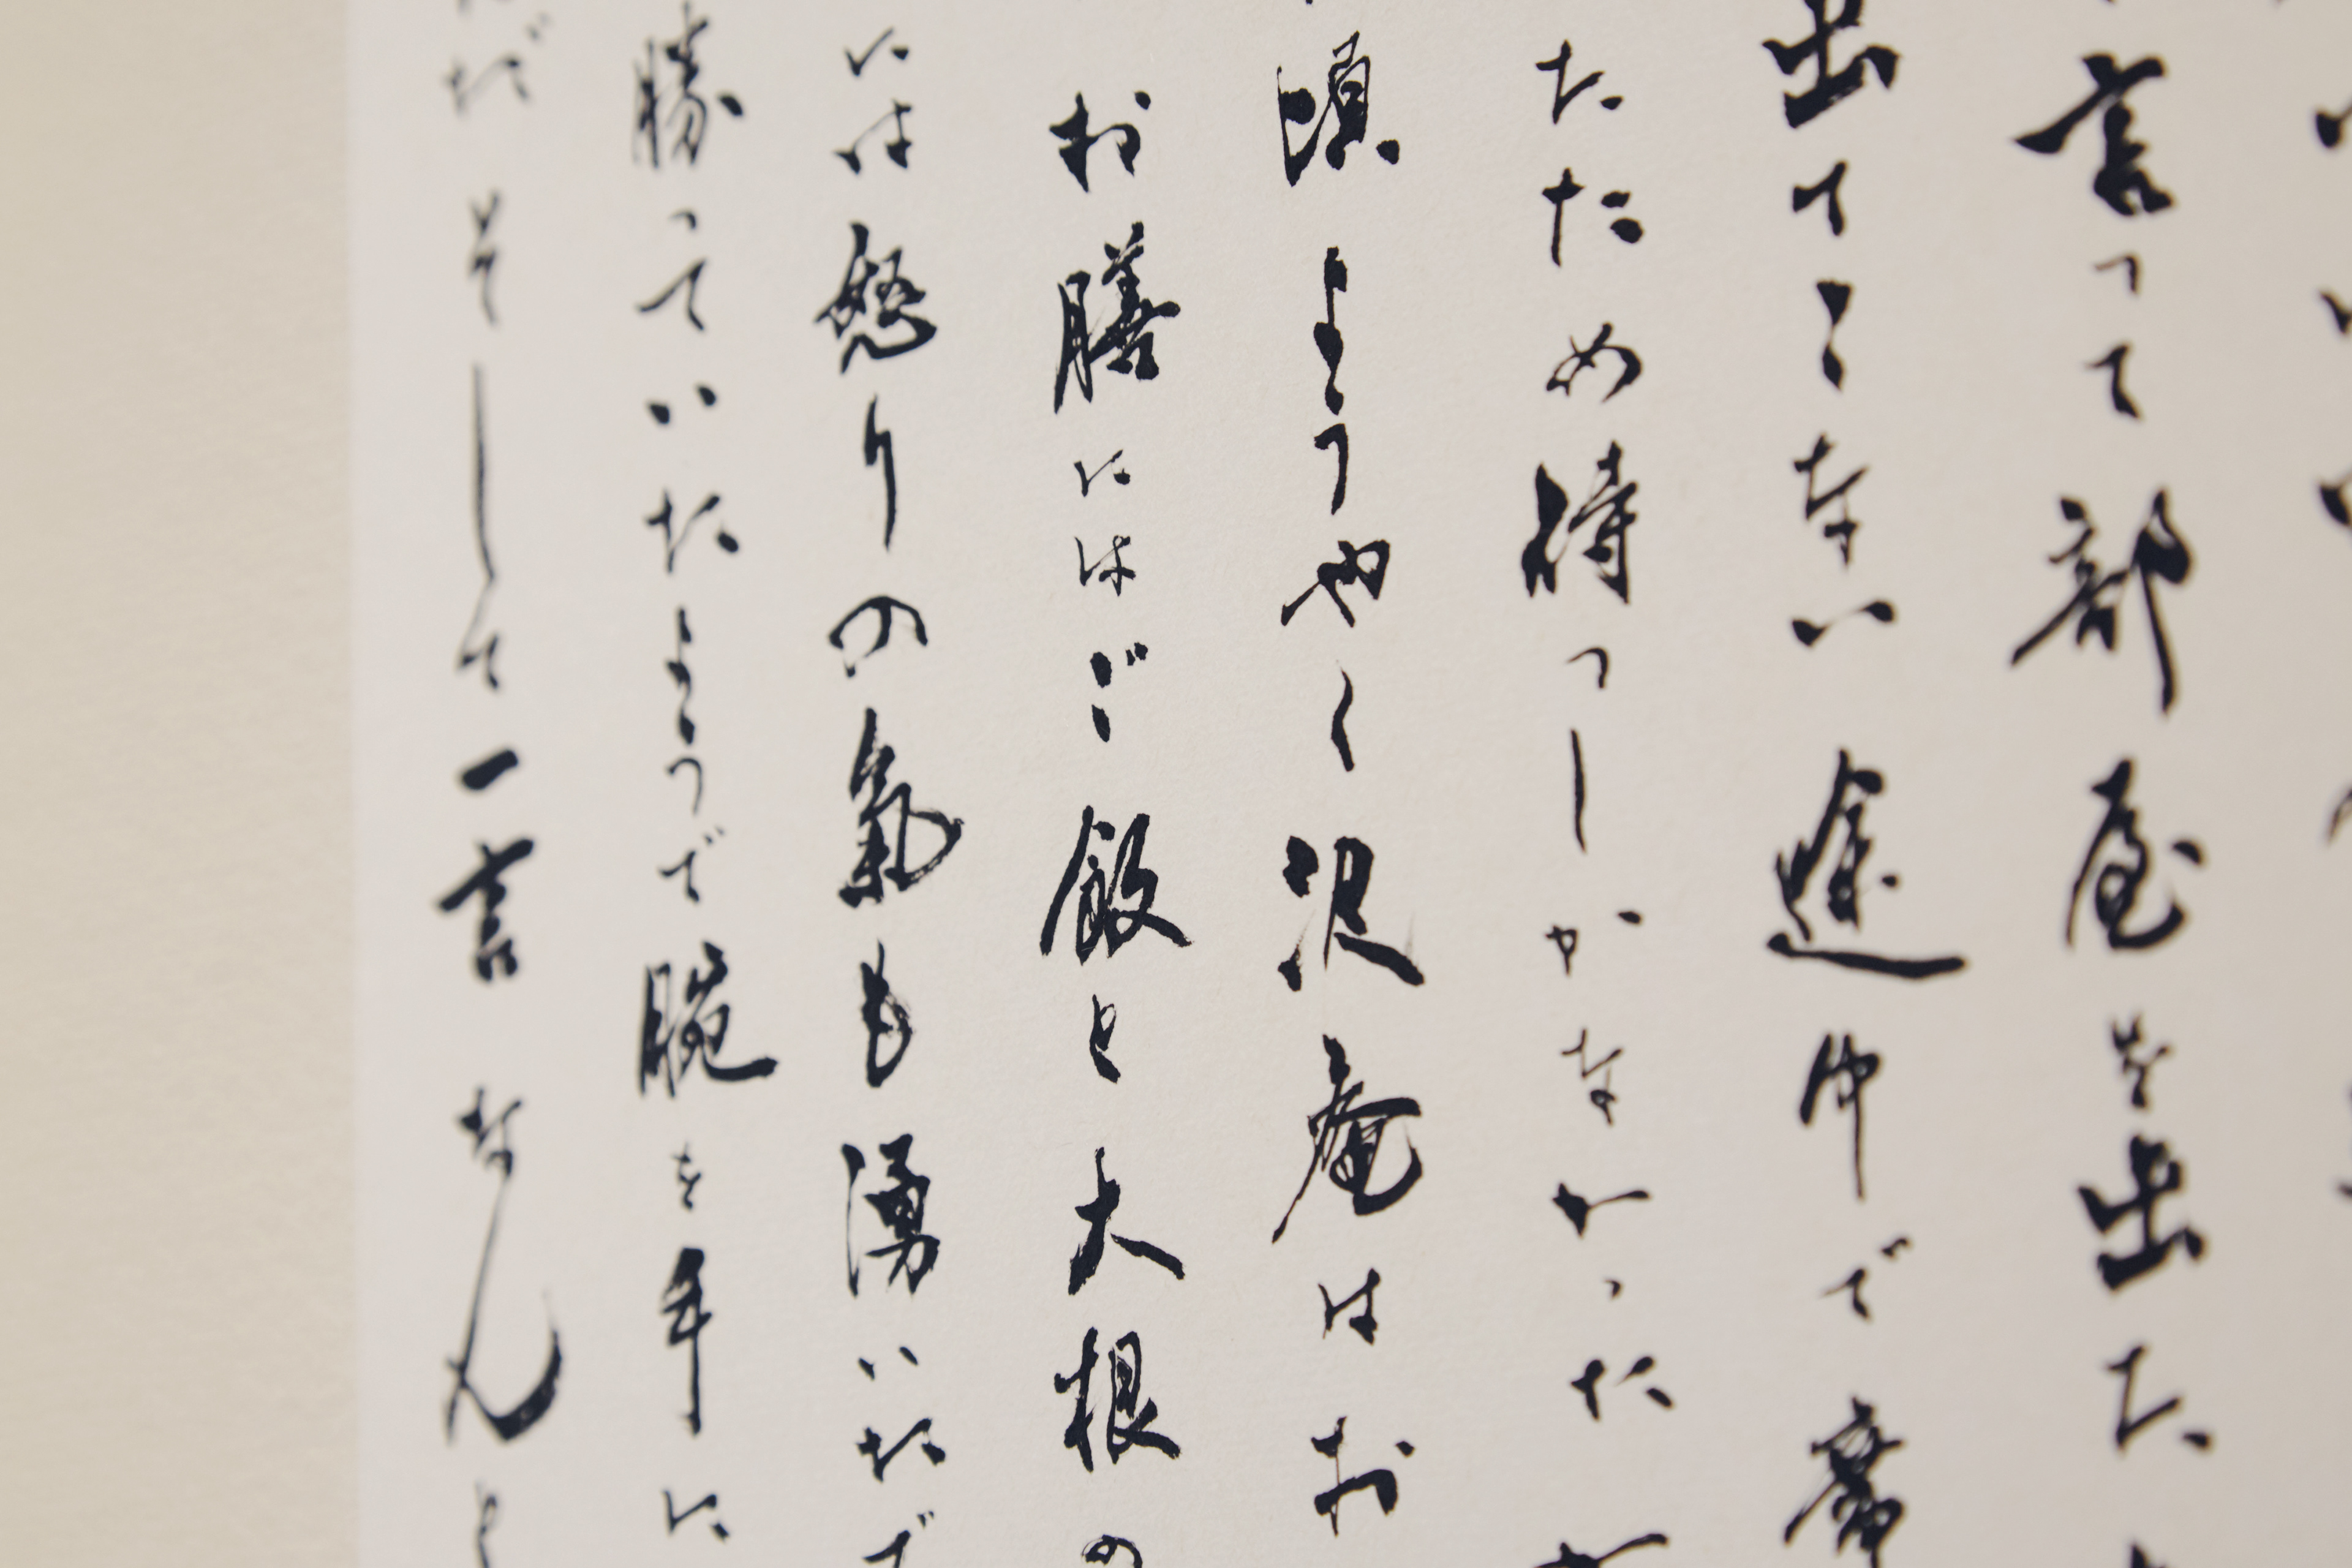 言って部屋を出た
出てこない途中で席
たため待つしかなかった
頃ようやく沢庵はお
お膳にはご飯と大根の
には怒りの氣も湧いたで
勝っていたようで腕を年に
だそして一言なんと